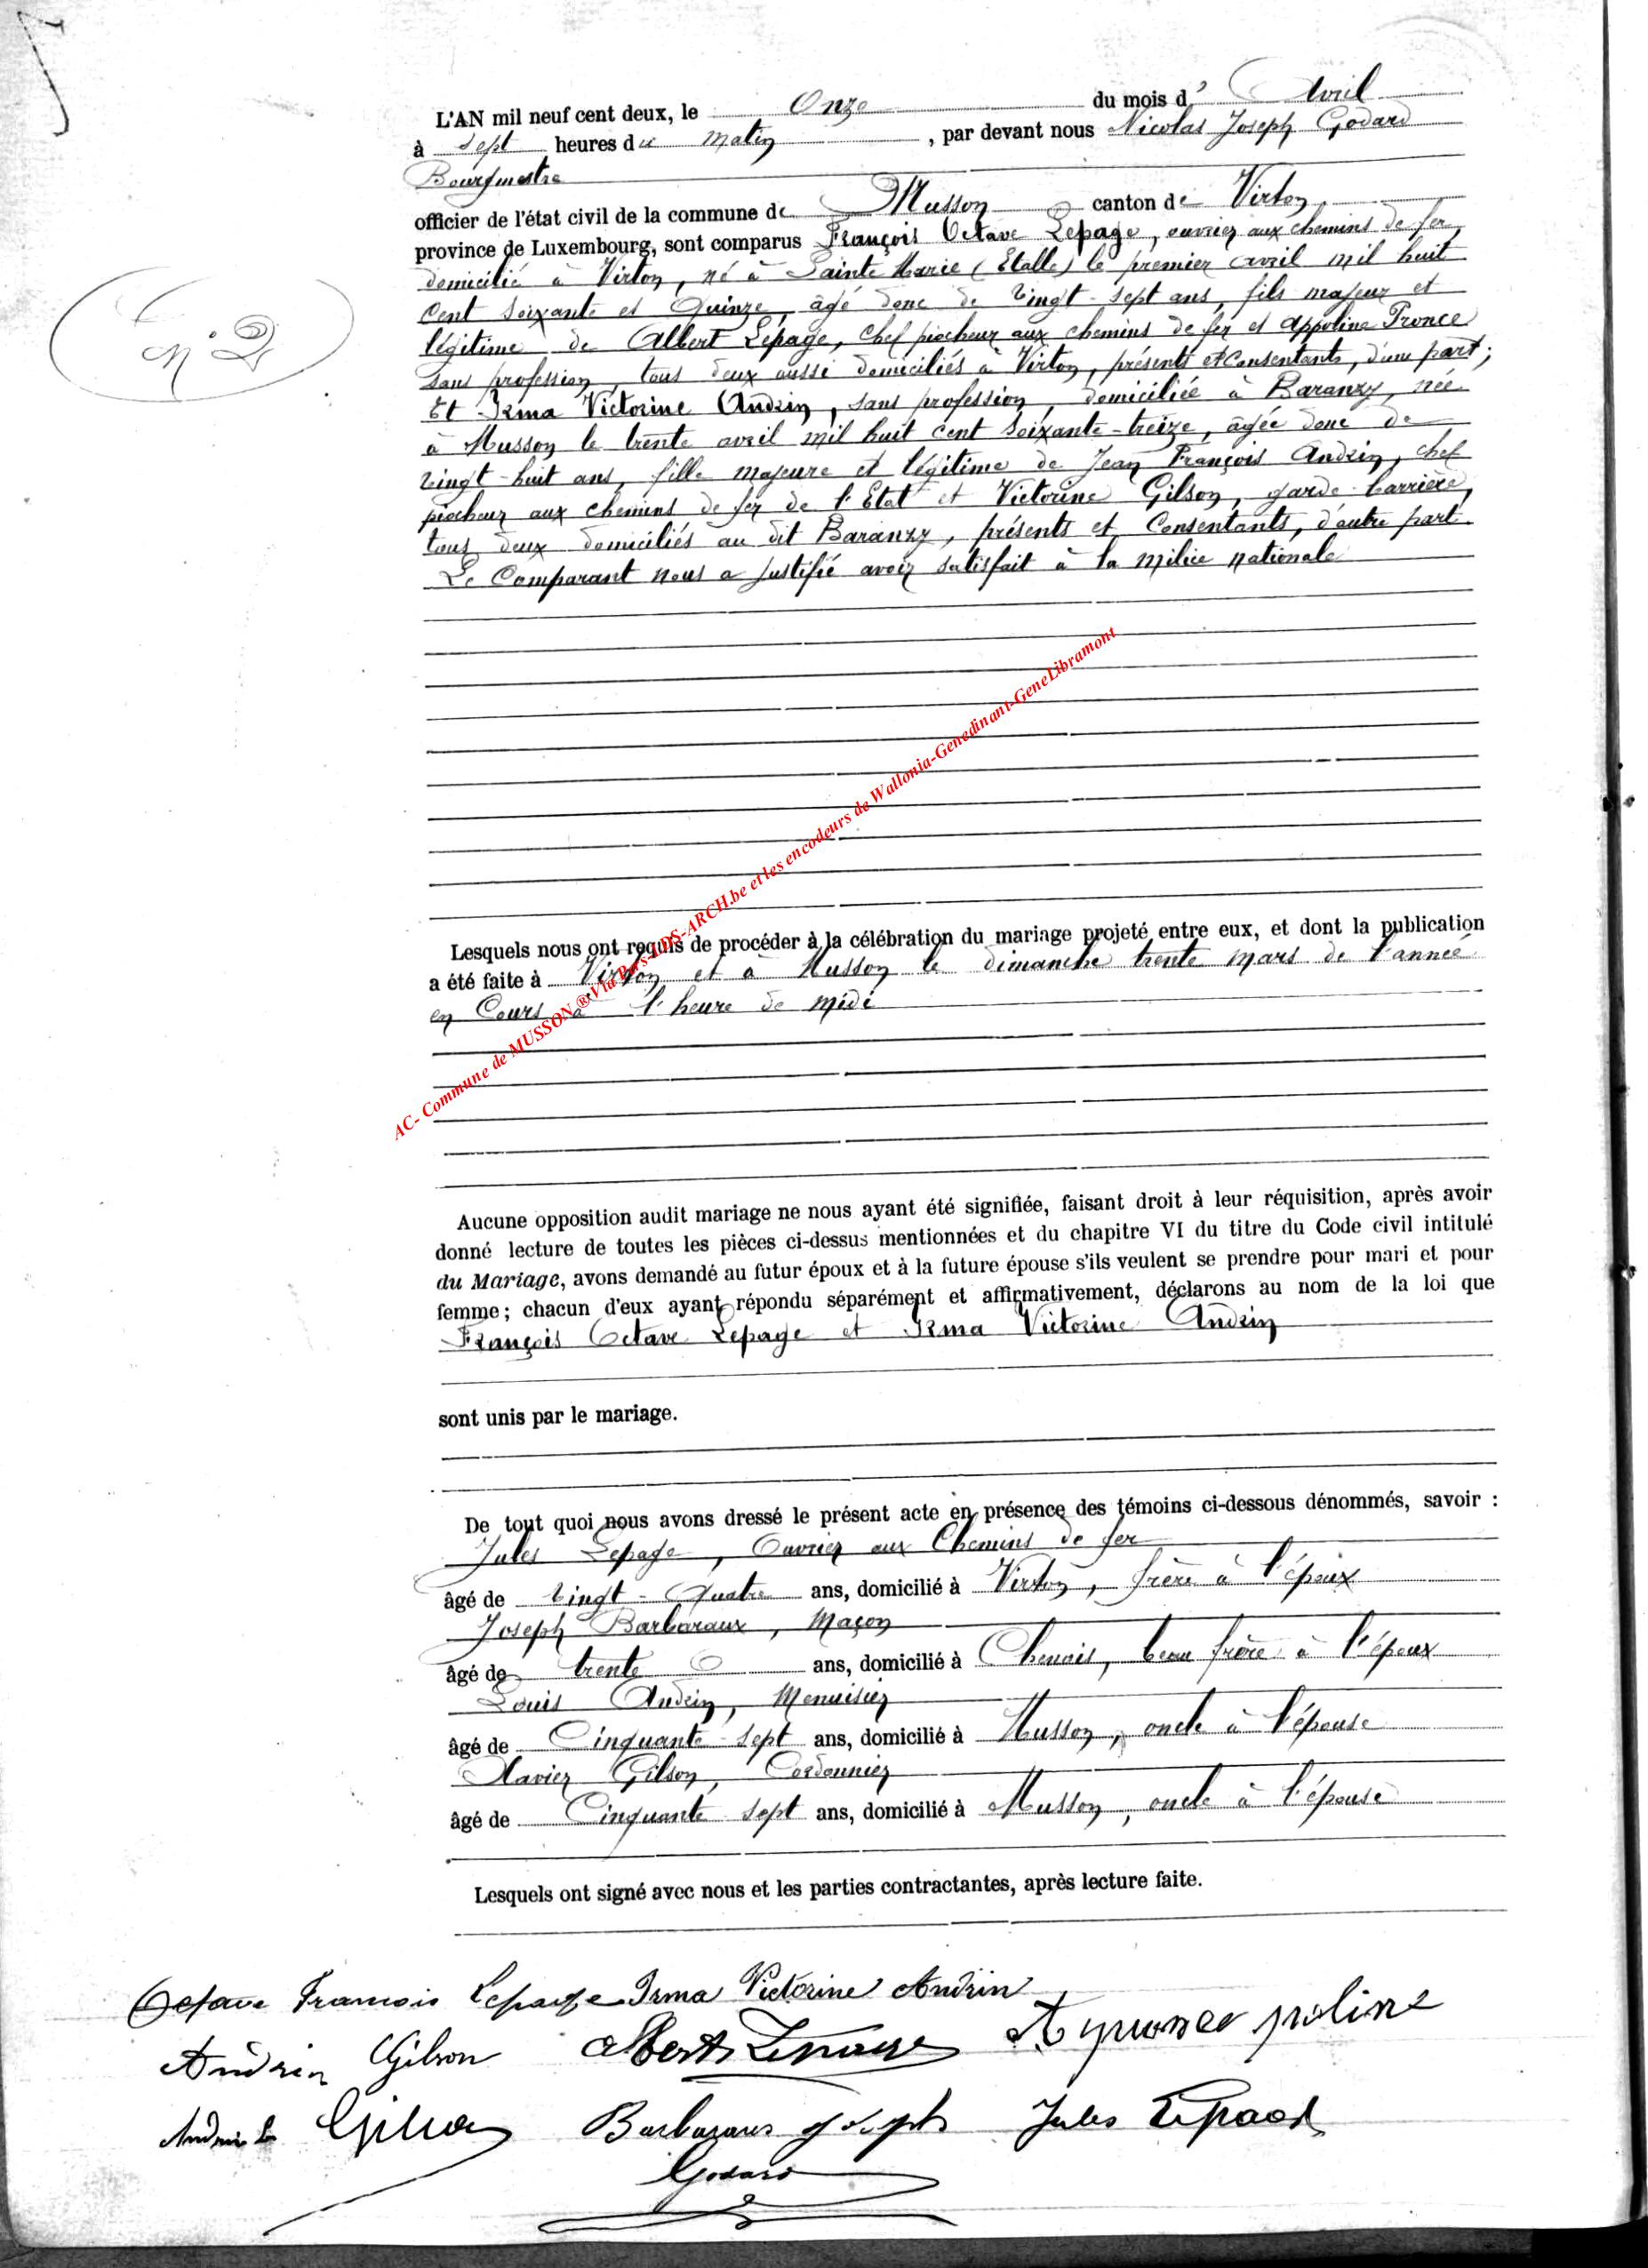 L'AN mil neuf cent deux, le Onze du mois d' Avril
à sept heures du matin, par devant nous Nicolas Joseph Godard
Bourgmestre
officier de l'état civil de la commune de Musson canton de Virton,
province de Luxembourg, sont comparus François Octave Lepage, ouvrier aux chemins de fer,
domicilié à Virton, né à Sainte Marie (Etalle) le premier avril mil huit
cent soixante et Quinze, âgé donc de vingt-sept ans, fils majeur et
légitime de Albert Lepage, chef piocheur aux chemins de fer et Appoline Pronce
sans profession, tous deux aussi domiciliés à Virton, présents et consentants, d'une part;
Et Irma Victorine Andrin, sans profession, domiciliée à Baranzy, née
à Musson le trente avril mil huit cent soixante-treize, âgée donc de
vingt-huit ans, fille majeure et légitime de Jean François Andrin, chef
piocheur aux chemins de fer de l'Etat et Victorine Gilson, garde-barrière,
tous deux domiciliés au dit Baranzy, présents et Consentants, d'autre part.
Le Comparant nous a justifié avoir satisfait à la milice nationale
Lesquels nous ont requis de procéder à la célébration du mariage projeté entre eux, et dont la publication
a été faite à Virton et à Musson le dimanche trente mars de l'année
en Cours à l'heure de midi
AC- Commune de MUSSON ® Via Pars-LDS-ARCH.be et les encodeurs de Wallonia-Genedinant-GeneLibramont
Aucune opposition audit mariage ne nous ayant été signifiée, faisant droit à leur réquisition, après avoir
donné lecture de toutes les pièces ci-dessus mentionnées et du chapitre VI du titre du Code civil intitulé
du Mariage, avons demandé au futur époux et à la future épouse s'ils veulent se prendre pour mari et pour
femme; chacun d'eux ayant répondu séparément et affirmativement, déclarons au nom de la loi que
François Octave Lepage et Irma Victorine Andrin
sont unis par le mariage.
De tout quoi nous avons dressé le présent acte en présence des témoins ci-dessous dénommés, savoir :
Jules Lepage, Ouvrier aux Chemins de fer
âgé de vingt-Quatre ans, domicilié à Virton, frère à l'époux
Joseph Barbaraux, Maçon
âgé de trente ans, domicilié à Chenois, beau frère à l'époux
Louis Andrin, Menuisier
âgé de Cinquante-sept ans, domicilié à Musson, oncle à l'épouse
Xavier Gilson, Cordonnier
âgé de Cinquante sept ans, domicilié à Musson, oncle à l'épouse
Lesquels ont signé avec nous et les parties contractantes, après lecture faite.
Octave Francois Lepage Irma Victorine Andrin
Andrin Gilson Albert Lepage
Andrin L Gilson Barbaraux Joseph Jules Lepage
Godard